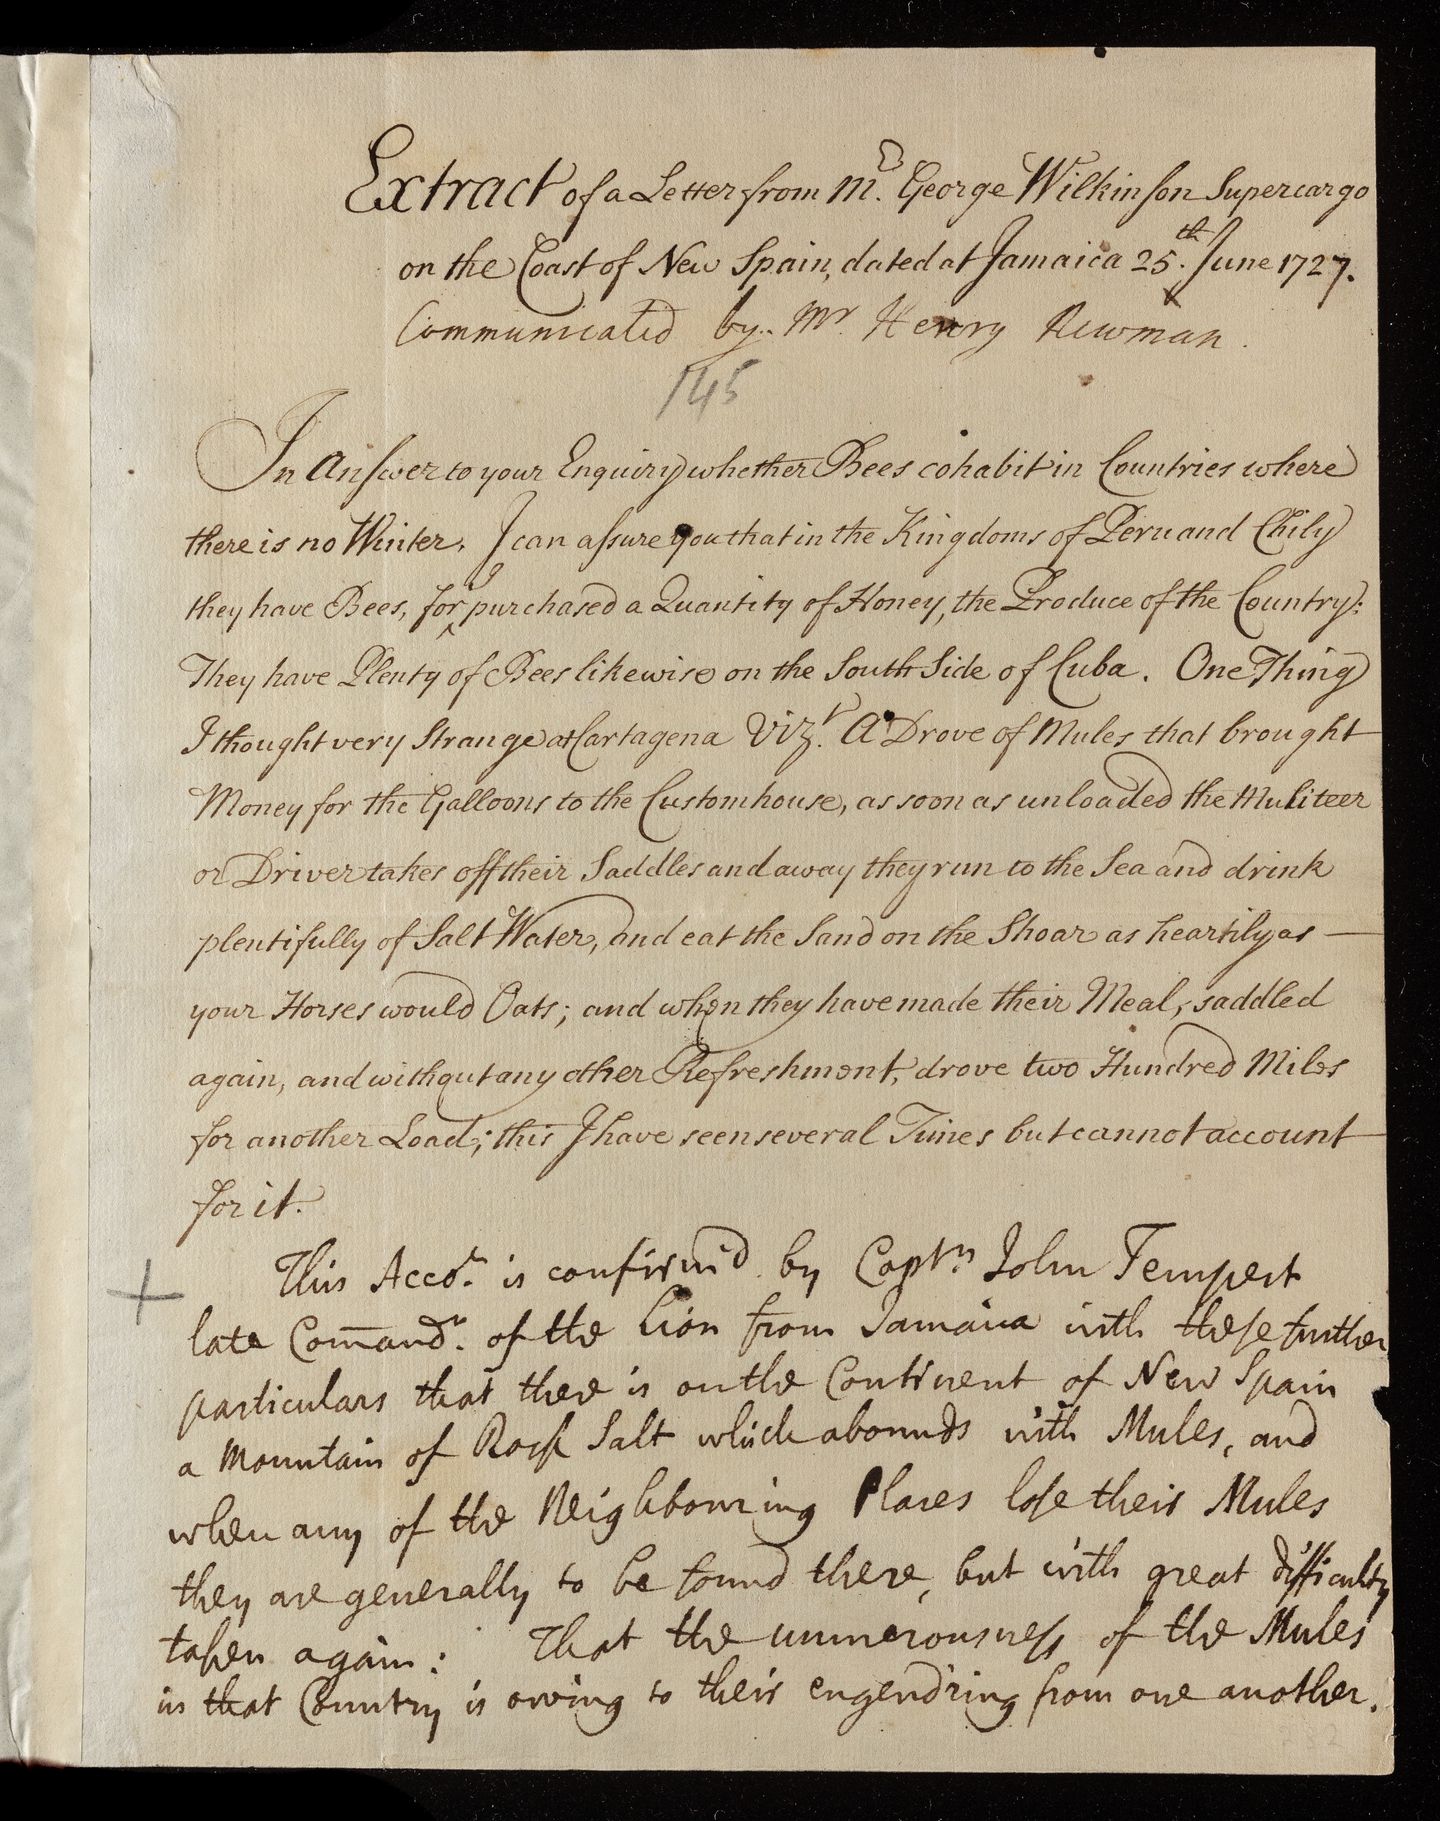 Extract of a Letter from Mr. George Wilkinson Supercargo
on the Coast of New Spain, dated at Jamaica 25.th June 1727.
Communicated by Mr. Henry Newman.
145
In answer to your Enquiry whether Bees cohabit in Countries where
there is no Winter. I can assure you that in the Kingdoms of Peru and Chily
they have Bees, for I purchased a Quantity of Honey, the Produce of the Country:
They have Plenty of Bees likewise on the South Side of Cuba. One Thing
I thought very Strange at Cartagena Vizt. A Drove of Mules that brought
Money for the Galloons to the Customhouse, as soon as unloaded the Muliteer
or Driver takes off their Saddles and away they run to the Sea and drink
plentifully of Salt Water, and eat the Sand on the Shoar as heartily as
your Horses would Oats; and when they have made their Meal, saddled
again, and without any other Refreshment, drove two Hundred Miles
for another Load; this I have seen several Times but cannot account
for it.
This Accot. is confirm'd by Captn. John Tempest
late Comandr. of the Lion from Jamaica with these further
particulars that there is on the Continent of New Spain
a Mountain of Rock Salt which abounds with Mules, and
when any of the Neighbouring Places lose their Mules
they are generally to be found there, but with great difficulty
taken again: That the numerousness of the Mules
in that Country is owing to their engend'ring from one another.